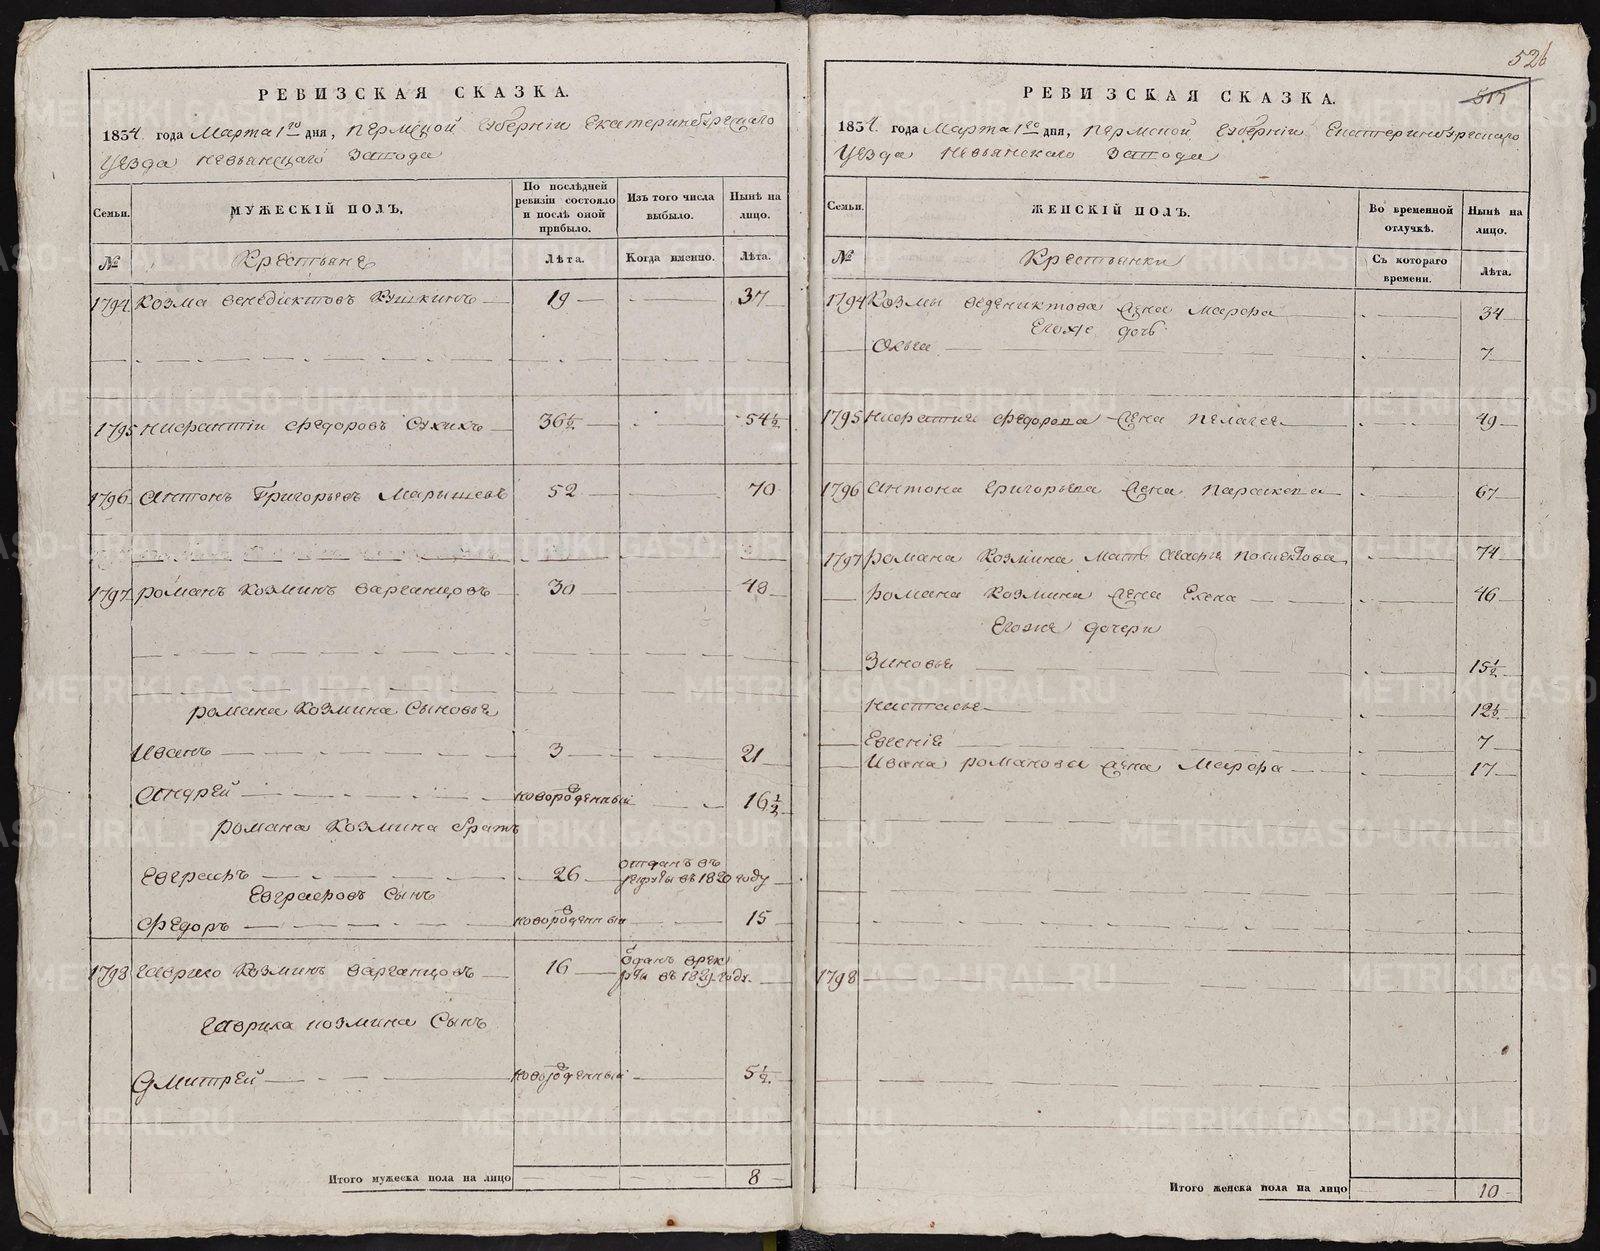 526
517
РЕВИЗСКАЯ СКАЗКА.
1834. года Марта 1го дня, Пермской Губерніи Екатеринбургскаго
Уезда Невьянскаго Завода
Семьи.
МУЖЕСКІЙ ПОЛЪ.
По послѣдней ревизіи состояло и послѣ оной прибыло.
Изъ того числа выбыло.
Нынѣ на лицо.
№
Крестьяне
Лѣта.
Когда именно.
Лѣта.
1794 Козма Венедиктовъ 19 37
1795 Никфантій Федоровъ Сухихъ 36½ 54½
1796 Антонъ Григорьевъ Малышевъ 52 70
1797 Романъ Козминъ Варганцовъ 30 48
Романа Козмина Сыновья
Иванъ 3 21
Андрей новорожденный 16½
Романа Козмина братъ
Евграфъ 26 отданъ въ рекруты въ 1820 году
Евграфовъ Сынъ
Федоръ новорожденный 15
1798 Гаврило Козминъ Варганцовъ 16 отданъ в рекруты въ 1829 году.
Гаврила Козмина Сынъ
Дмитрей новорожденный 5½
Итого мужеска пола на лицо 8
РЕВИЗСКАЯ СКАЗКА.
1834. года Марта 1го дня, Пермской Губерніи Екатеринбургскаго
Уезда Невьянскаго Завода
Семьи.
ЖЕНСКІЙ ПОЛЪ.
Во временной отлучкѣ.
Нынѣ на лицо.
№
Крестьянки
Съ котораго времени.
Лѣта.
1794 Козмы Веденик​това Жена Марфа 34
Егоже дочь
Ольга 7
1795 Федорова Жена Пелагея 49
1796 Антона Григорьева Жена Парасковья 67
1797 Романа Козмина Мать 74
Романа Козмина Жена Елена 46
Егоже дочери
Зиновья 15½
Настасья 12½
Евгенія 7
Ивана Романова Жена Марфа 17
1798
Итого женска пола на лицо 10
METRIKI.GASO-URAL.RU